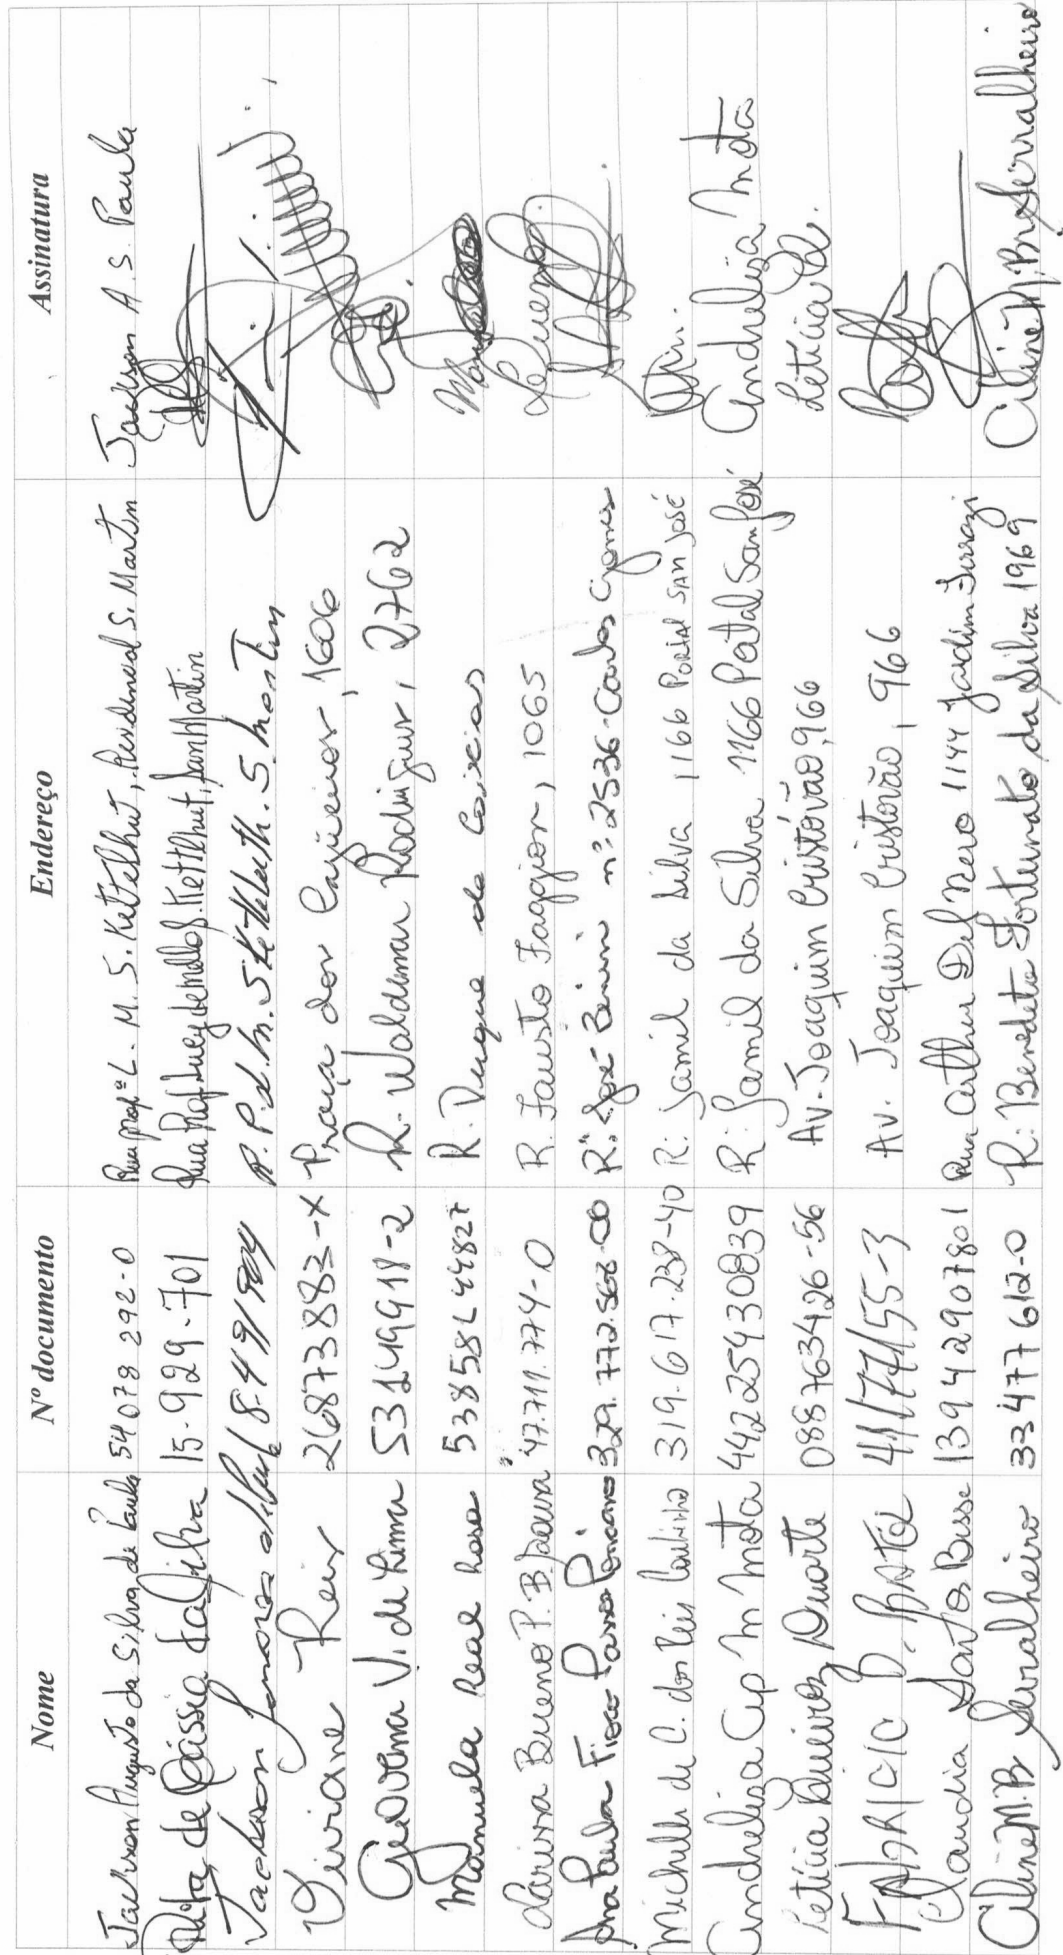 Nome Nº documento Endereço Assinatura
Jackson Augusto da Silva de Paula 54078 292-0 Rua profª L. M. S. Kettelhut, Residencial S. Martin Jackson A. S. Paula
Rita de Cássia da Silva 15.929.701 Rua Prof. Lucy de Mello S. Kettlhut, San Martin
Jackson 8.491904 R. P. d. M. S. Martin
Viviane Reis 26873883-X Praça dos Cajueiros, 1606
Geovana V. de Lima 53149918-2 R. Waldemar Rodrigues, 2762
Manuela Leal Rosa 53858544827 R. Duque de Caxias
Larissa Bueno P. B. 47.711.774-0 R. Fausto Faggion, 1065
Ana Paula 329.772.568-00 R: José Benin nº 2536-Carlos Gomes
Michelle de C. dos Reis Coutinho 319.617.238-40 R: Jamil da Silva, 1166 Portal San José
Andrelisa Ap M Mota 44225430839 R: Jamil da Silva 1166 Portal San José Andrelisa Mota
Letícia Queiroz Duarte 088763426-56 Av. Joaquim Cristovão, 966 Letícia
FABRICIO D. 41177155-3 Av. Joaquim Cristovão, 966
Claudia Santos Busse 13942907801 Rua Arthur Del Nero 1144 Jardim
Aline M. B. Serralheiro 33477612-0 R: Benedito Fortunato da Silva 1969 Aline M. B. Serralheiro